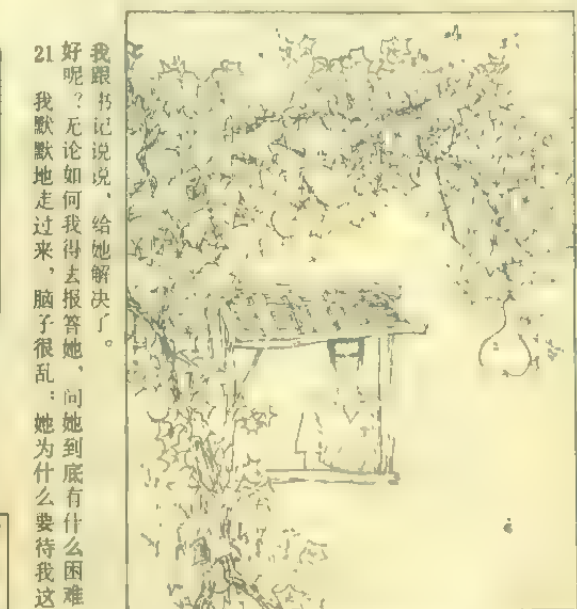 21 我默默地走过来，脑子很乱：她为什么要待我这
好呢？无论如何我得去报答她，问她到底有什么困难
我跟书记说说，给她解决了。